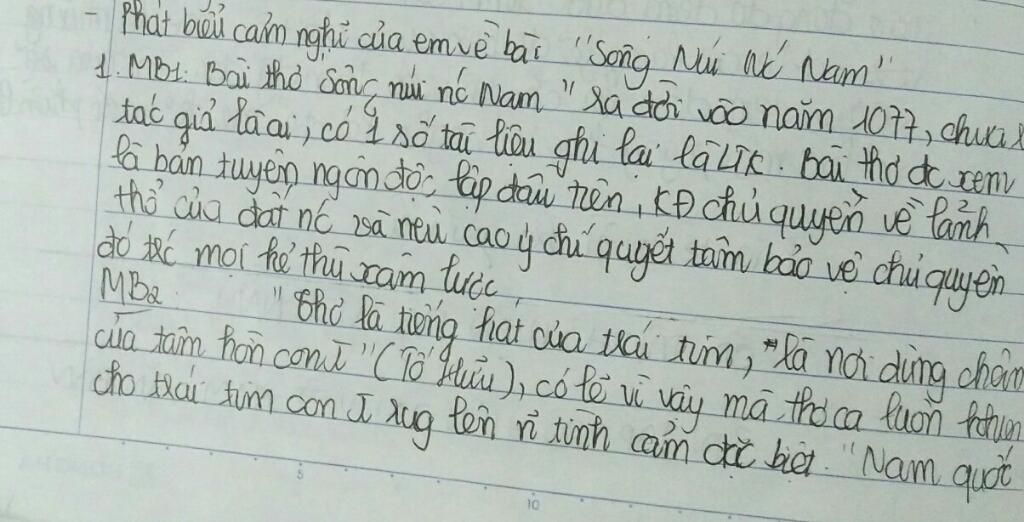 Phát biểu cảm nghĩ của em về bài "Sông Núi Nć Nam"
1. MB1. Bài thơ Sông núi nć Nam" ra đời vào năm 1077, chưa
tác giả là ai, có 1 số tài liệu ghi lại là LTK. Bài thơ đc xem
là bản tuyên ngôn độc lập đầu tiên, KĐ chủ quyền về lãnh
thổ của đất nć và nêu cao ý chí quyết tâm bảo vệ chủ quyền
đó trć mọi kẻ thù xâm lược
MB2 "Thơ là tiếng hát của trái tim, là nơi dừng chân
của tâm hồn con I" (Tố Hữu), có lẽ vì vậy mà thơ ca luôn
cho trái tim con I rug lên n~ tình cảm đặc biệt. "Nam quốc
5
10